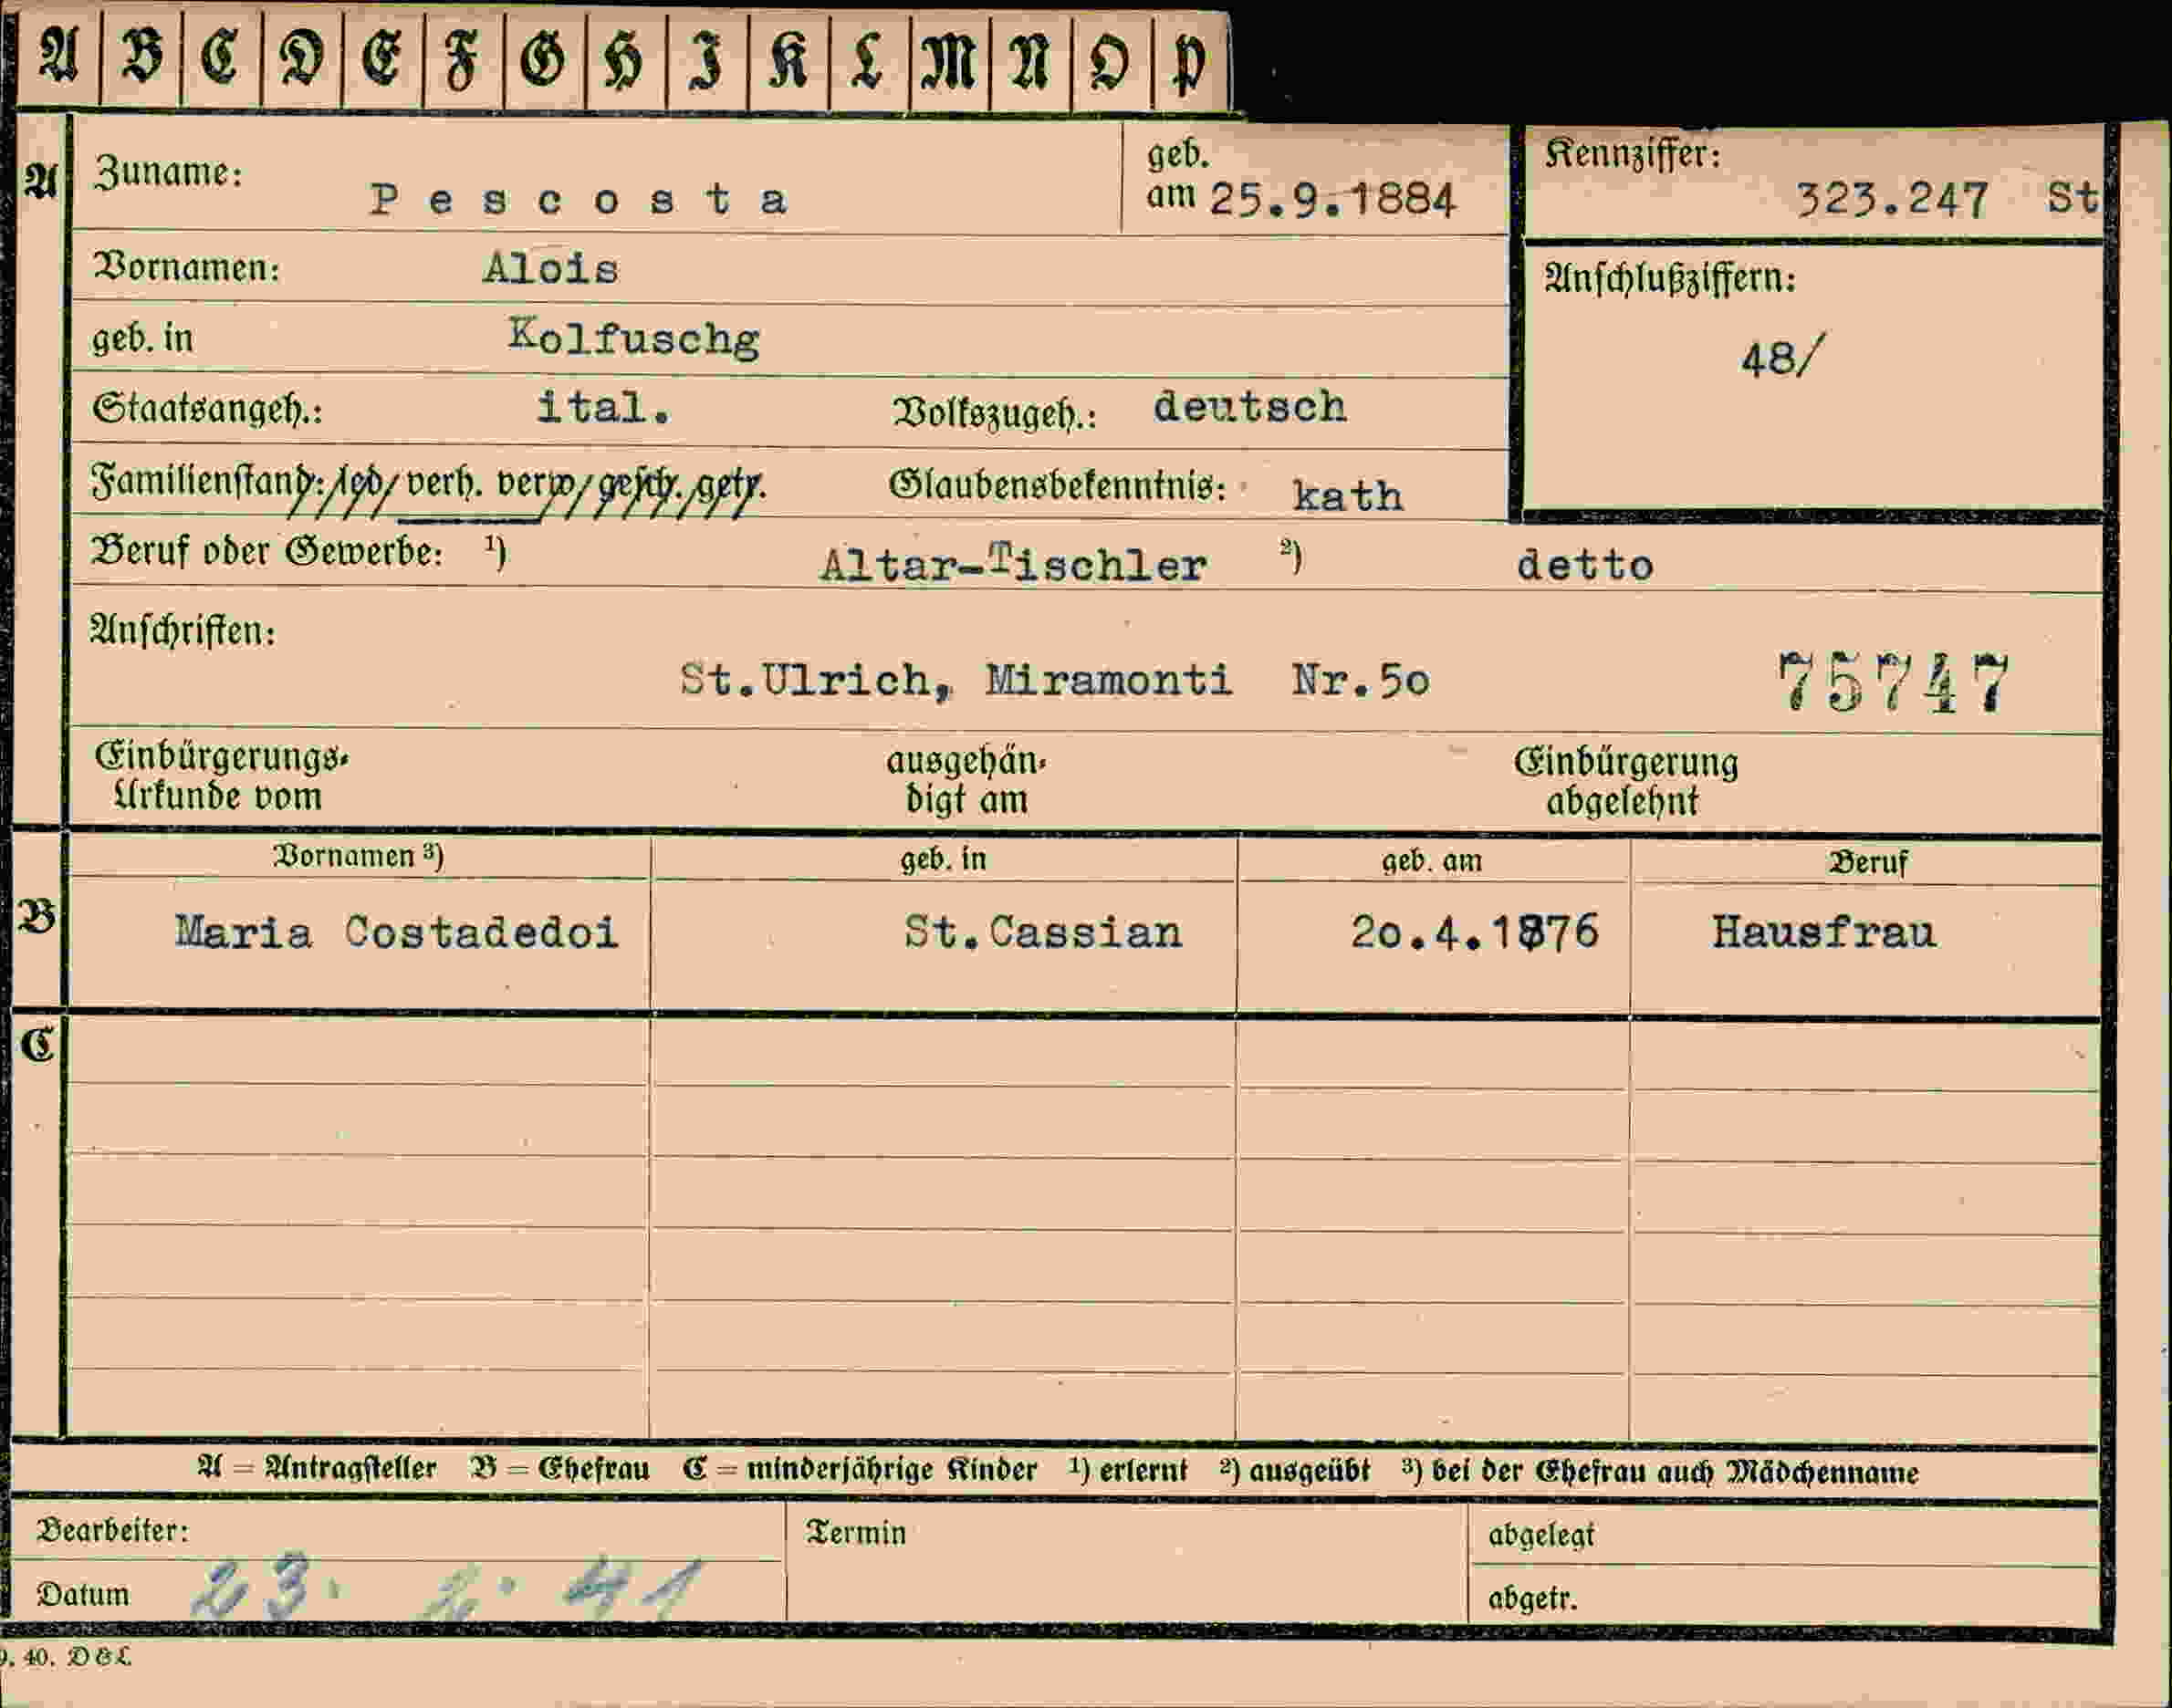 A B C D E F G H I K L M N O P
A Zuname: Pescosta geb. am 25.9.1884 Kennziffer: 323.247 St
Vornamen: Alois
geb. in Kolfuschg
Anschlußziffern: 48/
Staatsangeh.: ital. Volkszugeh.: deutsch
Familienstand: led. verh. verw. gesch. getr. Glaubensbekenntnis: kath
Beruf oder Gewerbe: ¹) Altar-Tischler ²) detto
Anschriften:
St.Ulrich, Miramonti Nr.5o 75747
Einbürgerungs-Urkunde vom ausgehän-digt am Einbürgerung abgelehnt
Vornamen ³) geb. in geb. am Beruf
B Maria Costadedoi St.Cassian 2o.4.1876 Hausfrau
C
A = Antragsteller B = Ehefrau C = minderjährige Kinder ¹) erlernt ²) ausgeübt ³) bei der Ehefrau auch Mädchenname
Bearbeiter: Termin abgelegt
Datum 23. 2. 41 abgetr.
9. 40. D & L